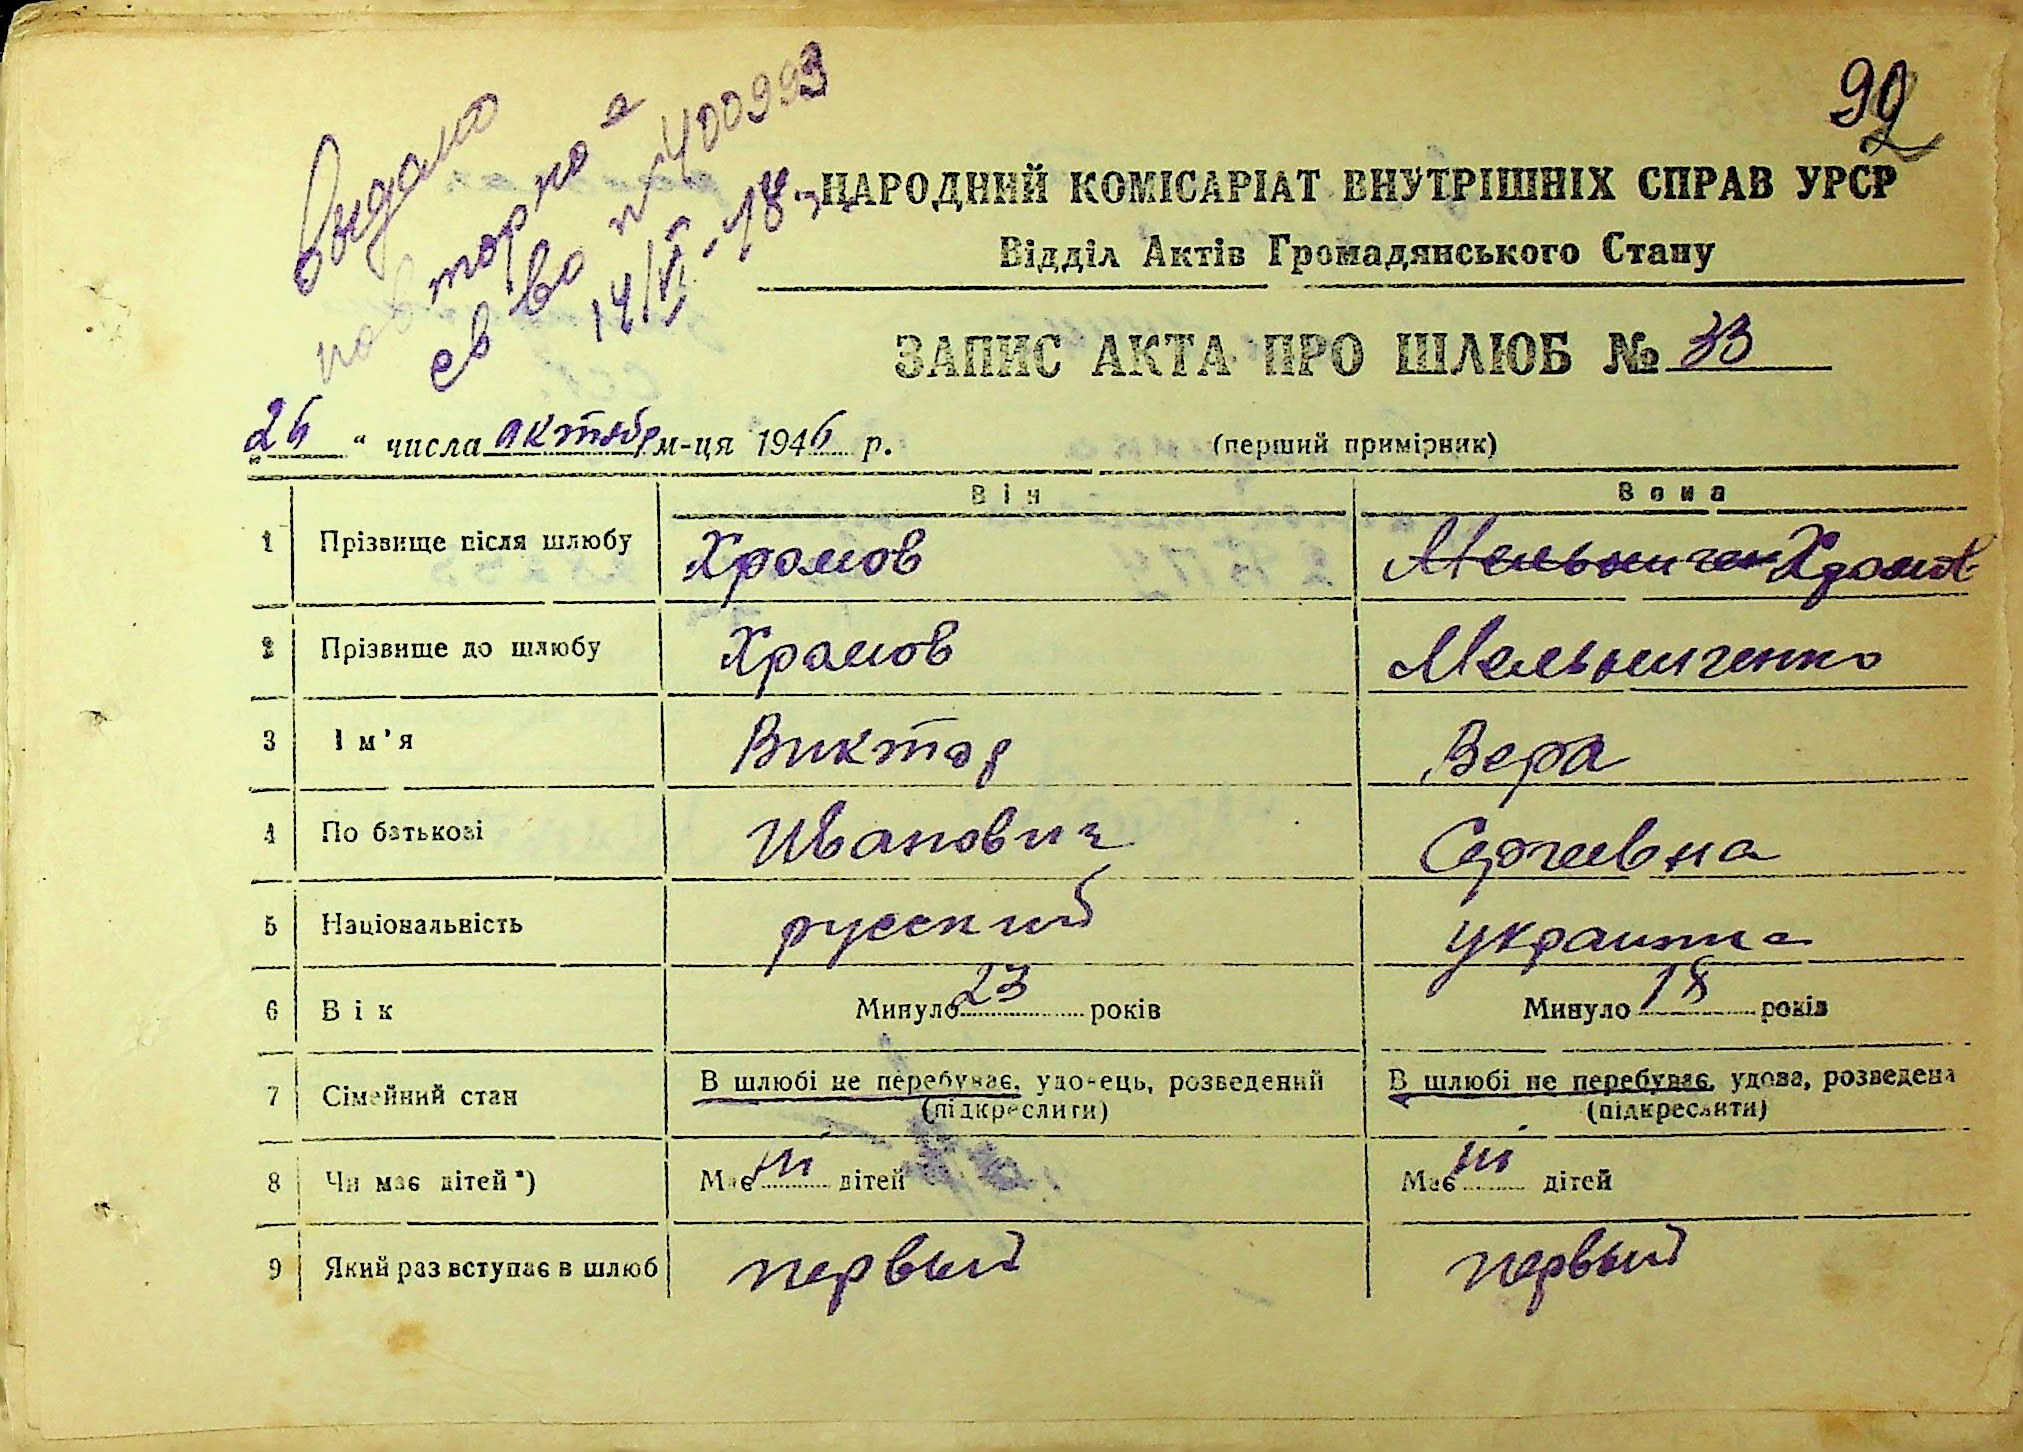 92
Видано
повторно
св во № 400993
14/VI-78
НАРОДНИЙ КОМІСАРІАТ ВНУТРІШНІХ СПРАВ УРСР
Відділ Актів Громадянського Стану
ЗАПИС АКТА ПРО ШЛЮБ № 33
„26“ числа октябр м-ця 1946 р. (перший примірник)
Він Вона
1 Прізвище після шлюбу Храмов Мельничен Храмов
2 Прізвище до шлюбу Храмов Мельниченко
3 Ім’я Виктор Вера
4 По батькові Иванович Сергеевна
5 Національність русский украинка
6 Вік Минуло 23 років Минуло 18 років
7 Сімейний стан В шлюбі не перебуває, удовець, розведений В шлюбі не перебуває, удова, розведена
(підкреслити) (підкреслити)
8 Чи має дітей*) Має ні дітей Має ні дітей
9 Який раз вступає в шлюб первый первый